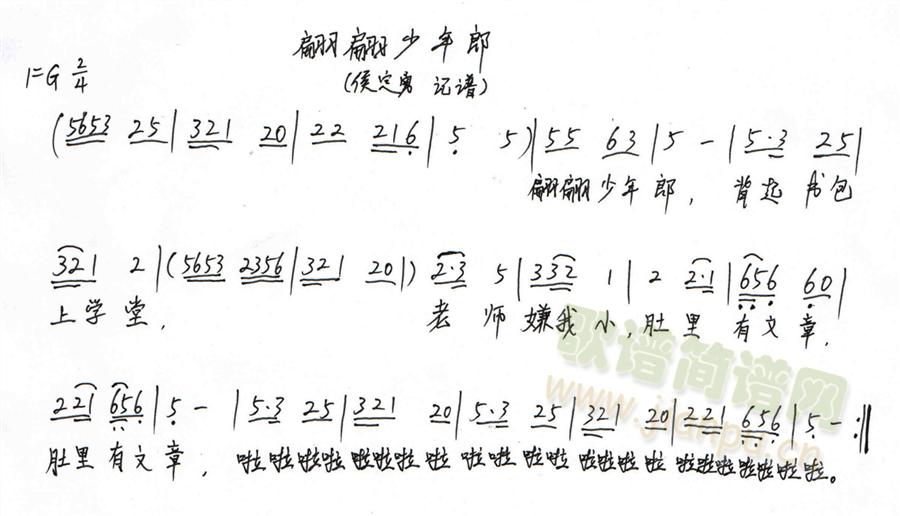 翩翩少年郎
1=G 2/4
(侯定勇 记谱)
(5653 25|321 20|22 216|5 5)|55 63|5 -|5·3 25|
翩翩少年郎，背起书包
321 2|(5653 2356|321 20|) 2·3 5|332 1|2 2·1|656 60|
上学堂， 老师嫌我小，肚里有文章，
221 656|5 - |5·3 25|321 20|5·3 25|321 20|221 656|5 -:||
肚里有文章，啦啦啦啦啦啦啦啦啦啦啦啦啦啦啦啦啦啦啦啦啦啦啦。
歌谱简谱网
www.jianpu.cn